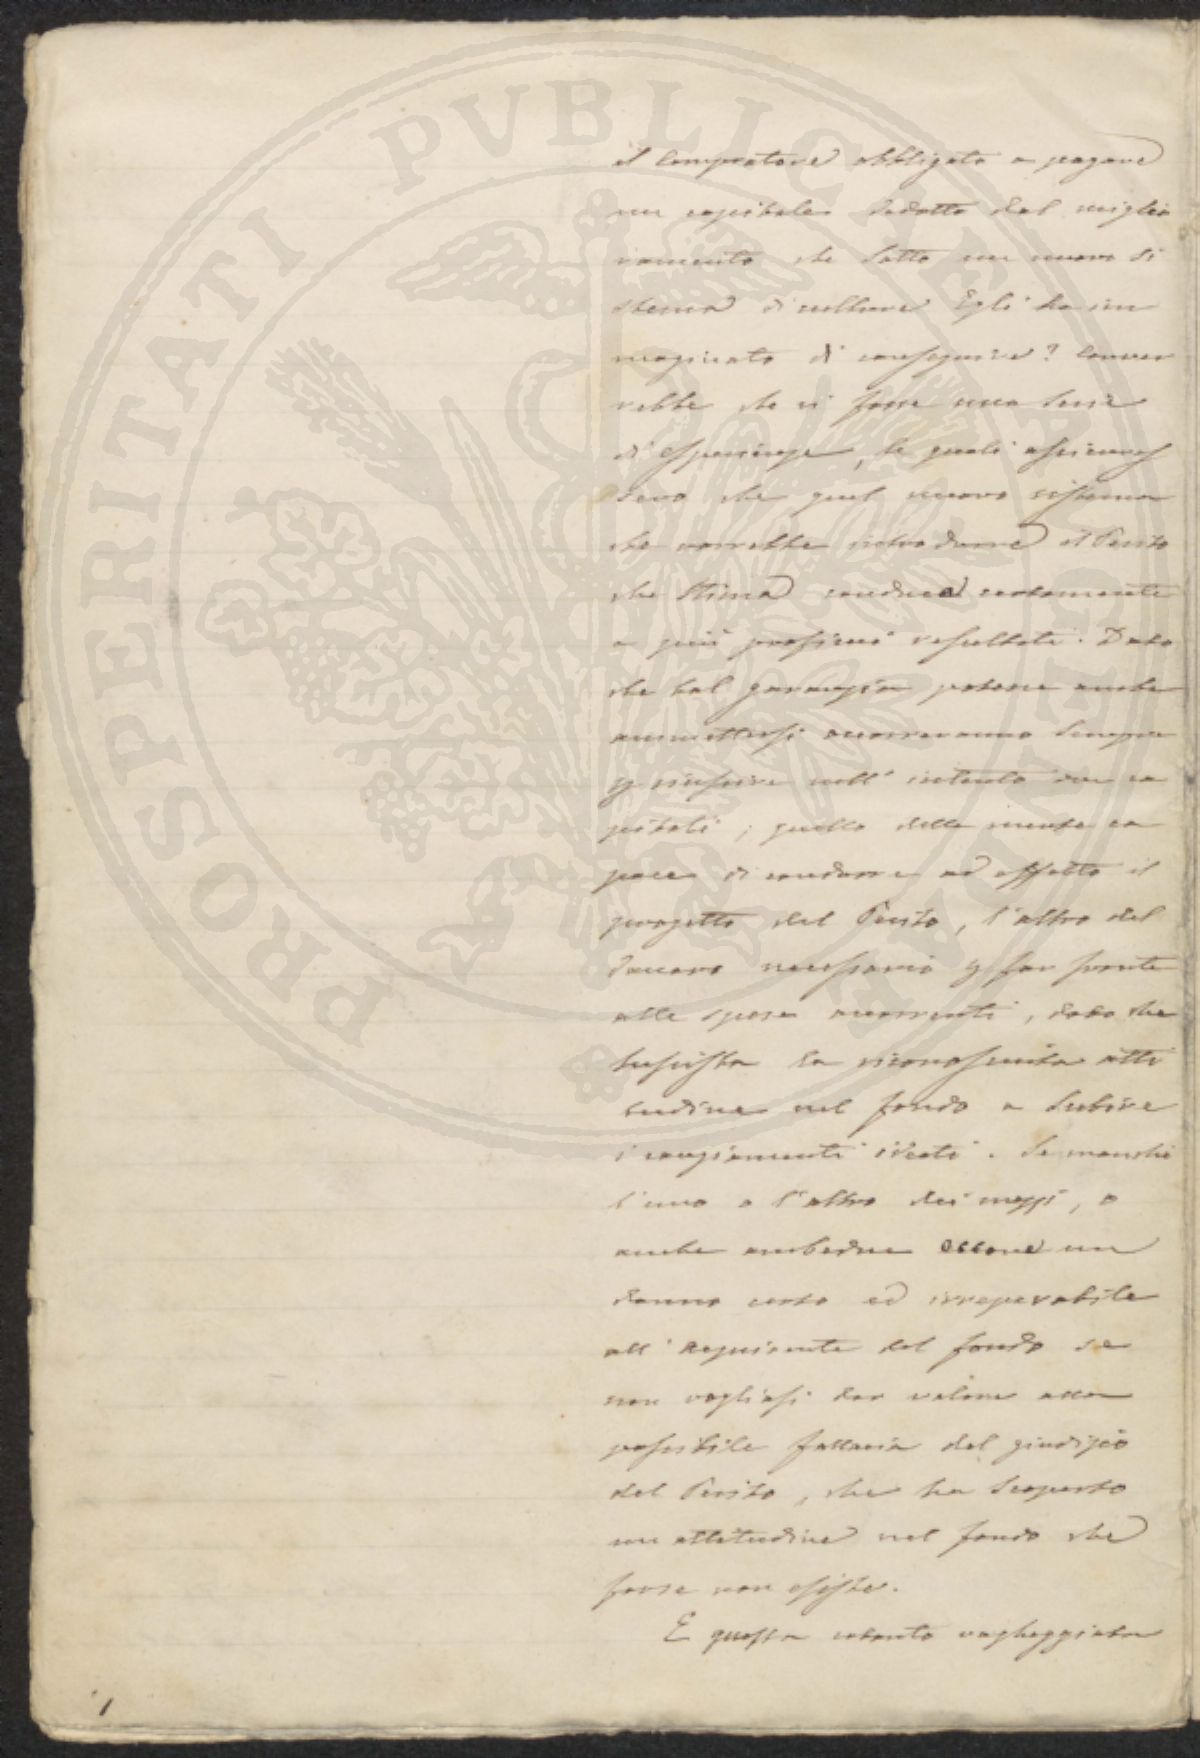 PROSPERITATI PVBLICAE AVGENDAE
il compratore obbligato a pagare
un capitale dedotto dal miglio
ramento che sotto un nuovo si
stema di colture Egli ha im
maginato di conseguire? Conver
rebbe che vi fosse una serie
di esperienze, le quali assicuras
sero che quel nuovo sistema
che vorrebbe introdurre il Perito
che stima conduca certamente
a più prossimi resultati. Dato
che tal garanzia potesse anche
ammettersi occorreranno sempre
p riuscire nell' intento due ca
pitali; quello della mente ca
pace di condurre ad effetto il
progetto del Perito, l'altro del
danaro necessario p far fronte
alle spese occorrenti, dato che
sussista la riconosciuta atti
tudine nel fondo a subire
i cangiamenti ideati. Se manchi
l'uno o l'altro dei mezzi, o
anche ambedue essone un
danno certo ed irreparabile
all' acquirente del fondo se
non vogliasi dar valore alla
possibile fallacia del giudizio
del Perito, che ha scoperto
un attitudine nel fondo che
forse non esiste.
E questa cotanto vagheggiata
1